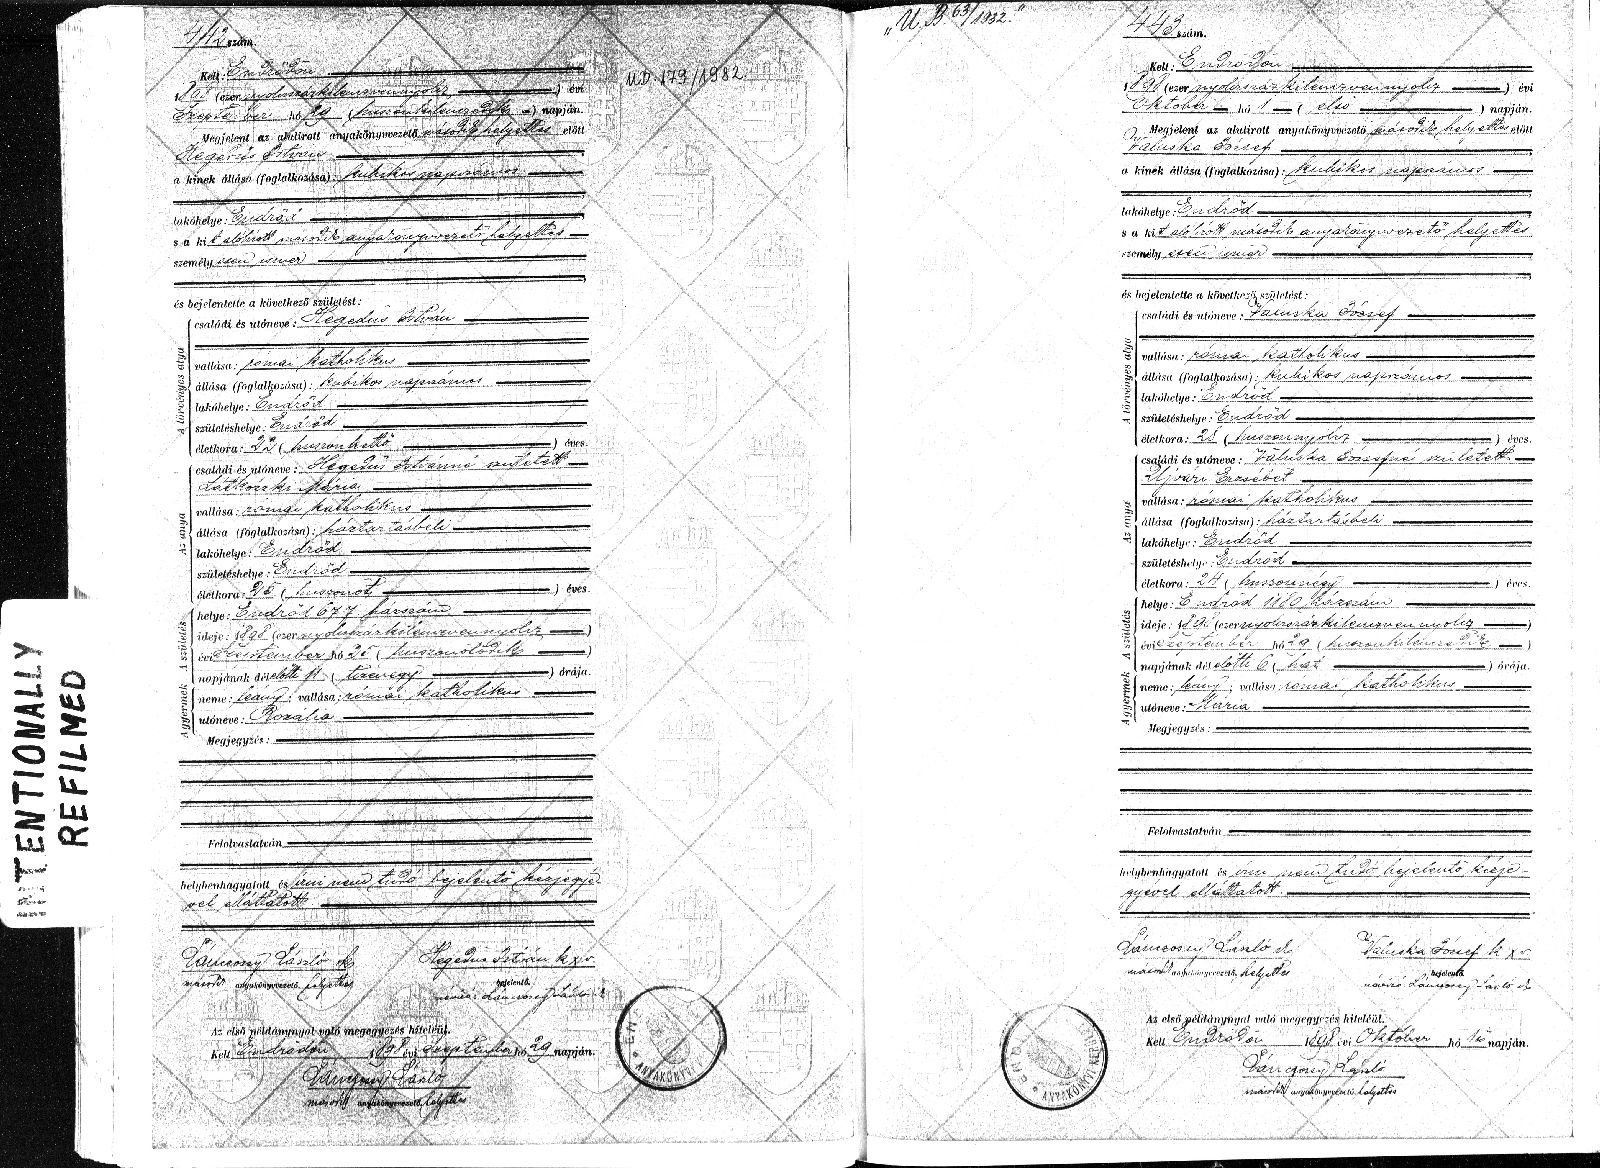 442 szám.
Kelt: Endrődön
1898 (ezernyolcszázkilenczvennyolcz) évi
Szeptember hó 29 (huszonkilenczedik) napján.
Megjelent az alulirott anyakönyvvezető második helyettes előtt
Hegedüs István
a kinek állása (foglalkozása): kubikos napszámos
lakóhelye: Endrőd
s a kit alólirott második anyakönyvvezető helyettes
személyesen ismer
és bejelentette a következő születést:
A törvényes atya
családi és utóneve: Hegedüs István
vallása: római katholikus
állása (foglalkozása): kubikos napszámos
lakóhelye: Endrőd
születéshelye: Endrőd
életkora: 22 (huszonkettő) éves.
Az anya
családi és utóneve: Hegedüs Istvánné született
Látkoczki Mária
vallása: római katholikus
állása (foglalkozása): háztartásbeli
lakóhelye: Endrőd
születéshelye: Endrőd
életkora: 25 (huszonöt) éves.
A gyermek A születés
helye: Endrőd 677 házszám
ideje: 1898 (ezernyolcszázkilenczvennyolcz)
évi Szeptember hó 25 (huszonötödik)
napjának délelőtti 11 (tizenegy) órája.
neme: leány; vallása: római katholikus
utóneve: Rozália
Megjegyzés:
Felolvastatván
helybenhagyatott és irni nem tudó bejelentő kézjegyé-
vel elláttatott
László
Hegedüs István k x v
második anyakönyvvezető helyettes
bejelentő.
László
Az első példánynyal való megegyezés hiteléül.
Kelt Endrődön 1898 évi Szeptember hó 29 napján.
László
második anyakönyvvezető helyettes
U.D. 179/1982.
ANYAKÖNYVI
INTENTIONALLY
REFILMED
"U. B 63/1982."
443 szám.
Kelt: Endrődön
1898 (ezernyolcszázkilenczvennyolcz) évi
Október hó 1 (első) napján.
Megjelent az alulirott anyakönyvvezető második helyettes előtt
Valuska József
a kinek állása (foglalkozása): kubikos napszámos
lakóhelye: Endrőd
s a kit alólirott második anyakönyvvezető helyettes
személyesen ismer
és bejelentette a következő születést:
A törvényes atya
családi és utóneve: Valuska József
vallása: római katholikus
állása (foglalkozása): kubikos napszámos
lakóhelye: Endrőd
születéshelye: Endrőd
életkora: 28 (huszonnyolcz) éves.
Az anya
családi és utóneve: Valuska Józsefné született
Ujvári Erzsébet
vallása: római katholikus
állása (foglalkozása): háztartásbeli
lakóhelye: Endrőd
születéshelye: Endrőd
életkora: 24 (huszonnégy) éves.
A gyermek A születés
helye: Endrőd 1180 házszám
ideje: 1898 (ezernyolcszázkilenczvennyolcz)
évi Szeptember hó 29 (huszonkilenczedik)
napjának délelőtti 6 (hat) órája.
neme: leány; vallása: római katholikus
utóneve: Mária
Megjegyzés:
Felolvastatván
helybenhagyatott és irni nem tudó bejelentő kézje-
gyével elláttatott
László
Valuska József k x v
második anyakönyvvezető helyettes
bejelentő.
László
Az első példánynyal való megegyezés hiteléül.
Kelt Endrődön 1898 évi Október hó 1 napján.
László
második anyakönyvvezető helyettes
ANYAKÖNYVI KERÜLET